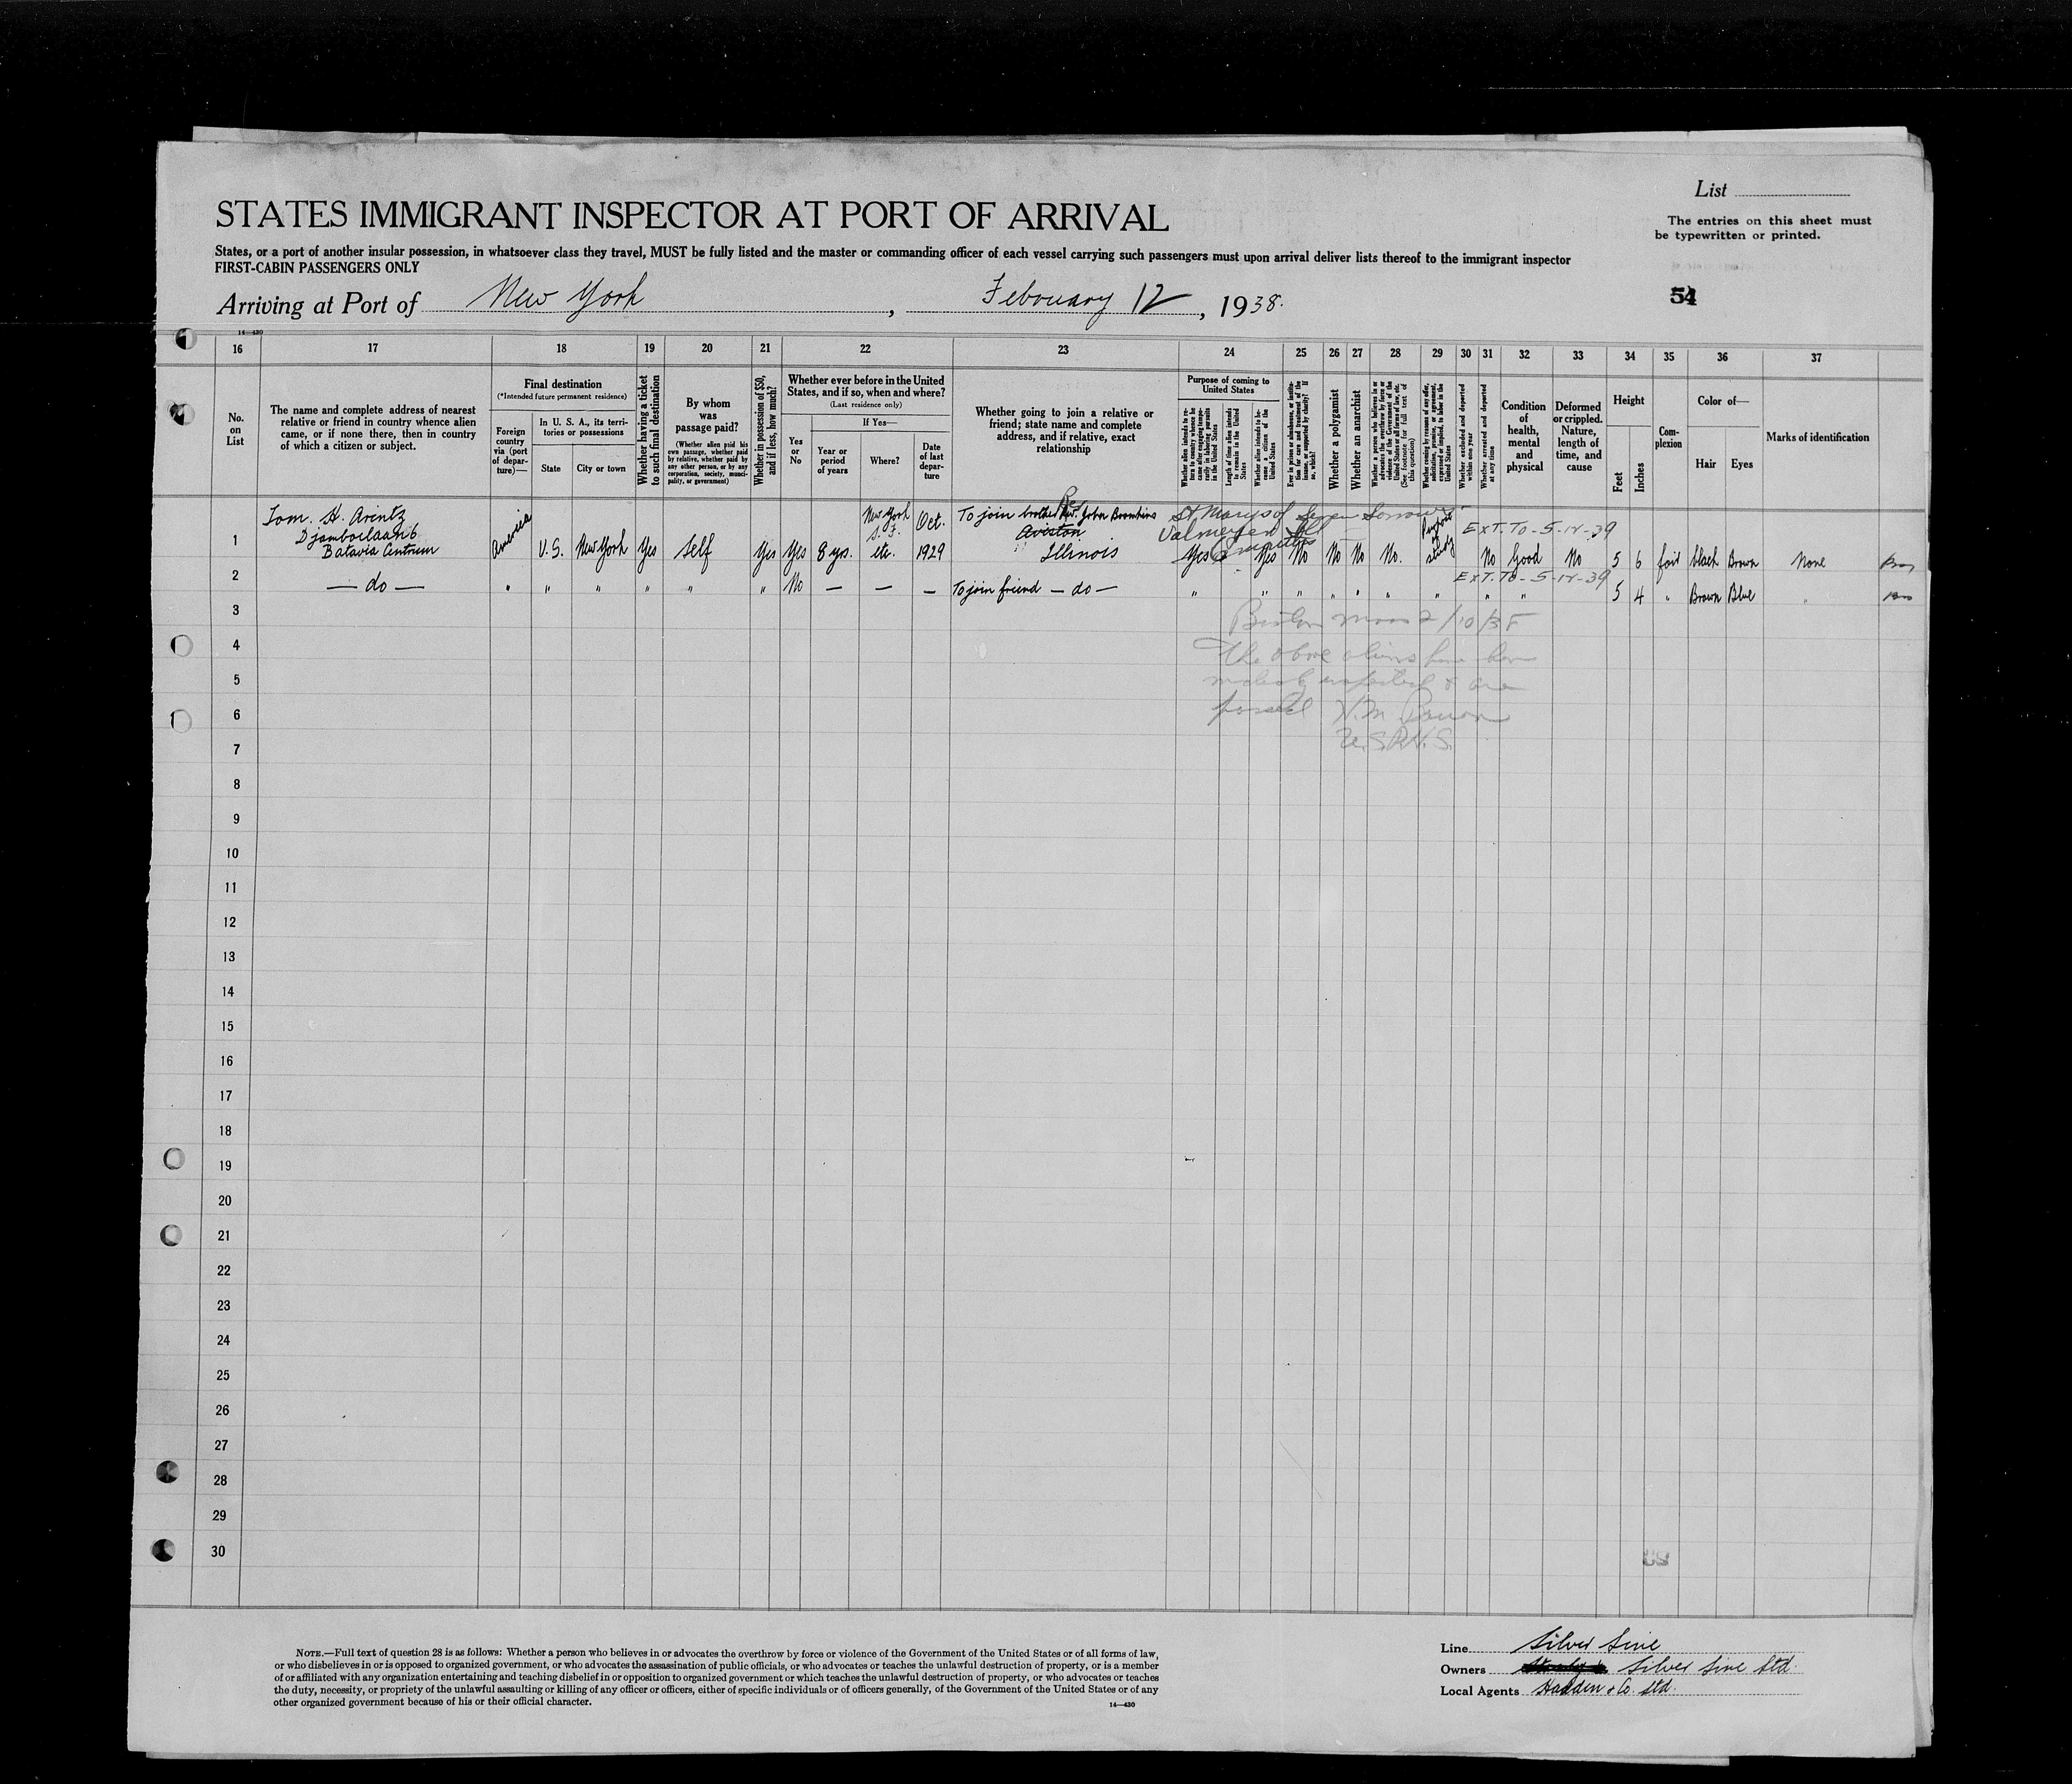 List
STATES IMMIGRANT INSPECTOR AT PORT OF ARRIVAL
The entries on this sheet must
be typewritten or printed.
States, or a port of another insular possession, in whatsoever class they travel, MUST be fully listed and the master or commanding officer of each vessel carrying such passengers must upon arrival deliver lists thereof to the immigrant inspector
FIRST-CABIN PASSENGERS ONLY
54
Arriving at Port of New York, February 12, 1938.
14—430
16 17 18 19 20 21 22 23 24 25 26 27 28 29 30 31 32 33 34 35 36 37
No. on List
The name and complete address of nearest
relative or friend in country whence alien
came, or if none there, then in country
of which a citizen or subject.
Final destination
(*Intended future permanent residence)
Foreign country via (port of departure)—
In U. S. A., its territories or possessions
State
City or town
Whether having a ticket to such final destination
By whom was passage paid?
(Whether alien paid his own passage, whether paid by relative, whether paid by any other person, or by any corporation, society, municipality, or government)
Whether in possession of $50, and if less, how much?
Whether ever before in the United States, and if so, when and where?
(Last residence only)
Yes or No
If Yes—
Year or period of years
Where?
Date of last departure
Whether going to join a relative or
friend; state name and complete
address, and if relative, exact
relationship
Purpose of coming to United States
Whether alien intends to return to country whence he came after engaging temporarily in laboring pursuits in the United States
Length of time alien intends to remain in the United States
Whether alien intends to become a citizen of the United States
Ever in prison or almshouse, or institution for care and treatment of the insane, or supported by charity? If so, which?
Whether a polygamist
Whether an anarchist
Whether a person who believes in or advocates the overthrow by force or violence of the Government of the United States or all forms of law, etc. (See footnote for full text of this question)
Whether coming by reason of any offer, solicitation, promise, or agreement, expressed or implied, to labor in the United States
Whether excluded and deported within one year
Whether arrested and deported at any time
Condition of health, mental and physical
Deformed or crippled. Nature, length of time, and cause
Height
Feet
Inches
Complexion
Color of—
Hair
Eyes
Marks of identification
Tom. H. Arintz
Djamboelaan 6
Batavia Centrum
1 America U.S. New York Yes Self Yes Yes 8 yrs. New York S.F. etc. Oct. 1929
To join brother Rev. John
Aviston
Illinois
St Marys of Seven Sorrows
Valmeyer Ill
Yes Yes No No No No. study No Good No 5 6 fair black Brown None
Ext. To - 5-12-39
2 — do — " " " " " " No — — — To join friend — do — " " " " " " " " " 5 4 " Brown Blue "
Ext. To - 5-12-39
3
2/10/38
4
The above aliens have been
5
inspected & are
6
passed
7
8
9
10
11
12
13
14
15
16
17
18
19
20
21
22
23
24
25
26
27
28
29
30
NOTE.—Full text of question 28 is as follows: Whether a person who believes in or advocates the overthrow by force or violence of the Government of the United States or of all forms of law,
or who disbelieves in or is opposed to organized government, or who advocates the assassination of public officials, or who advocates or teaches the unlawful destruction of property, or is a member
of or affiliated with any organization entertaining and teaching disbelief in or opposition to organized government or which teaches the unlawful destruction of property, or who advocates or teaches
the duty, necessity, or propriety of the unlawful assaulting or killing of any officer or officers, either of specific individuals or of officers generally, of the Government of the United States or of any
other organized government because of his or their official character.
14—430
Line Silver Line
Owners Silver Line Ltd.
Local Agents Hadden & Co. Ltd.